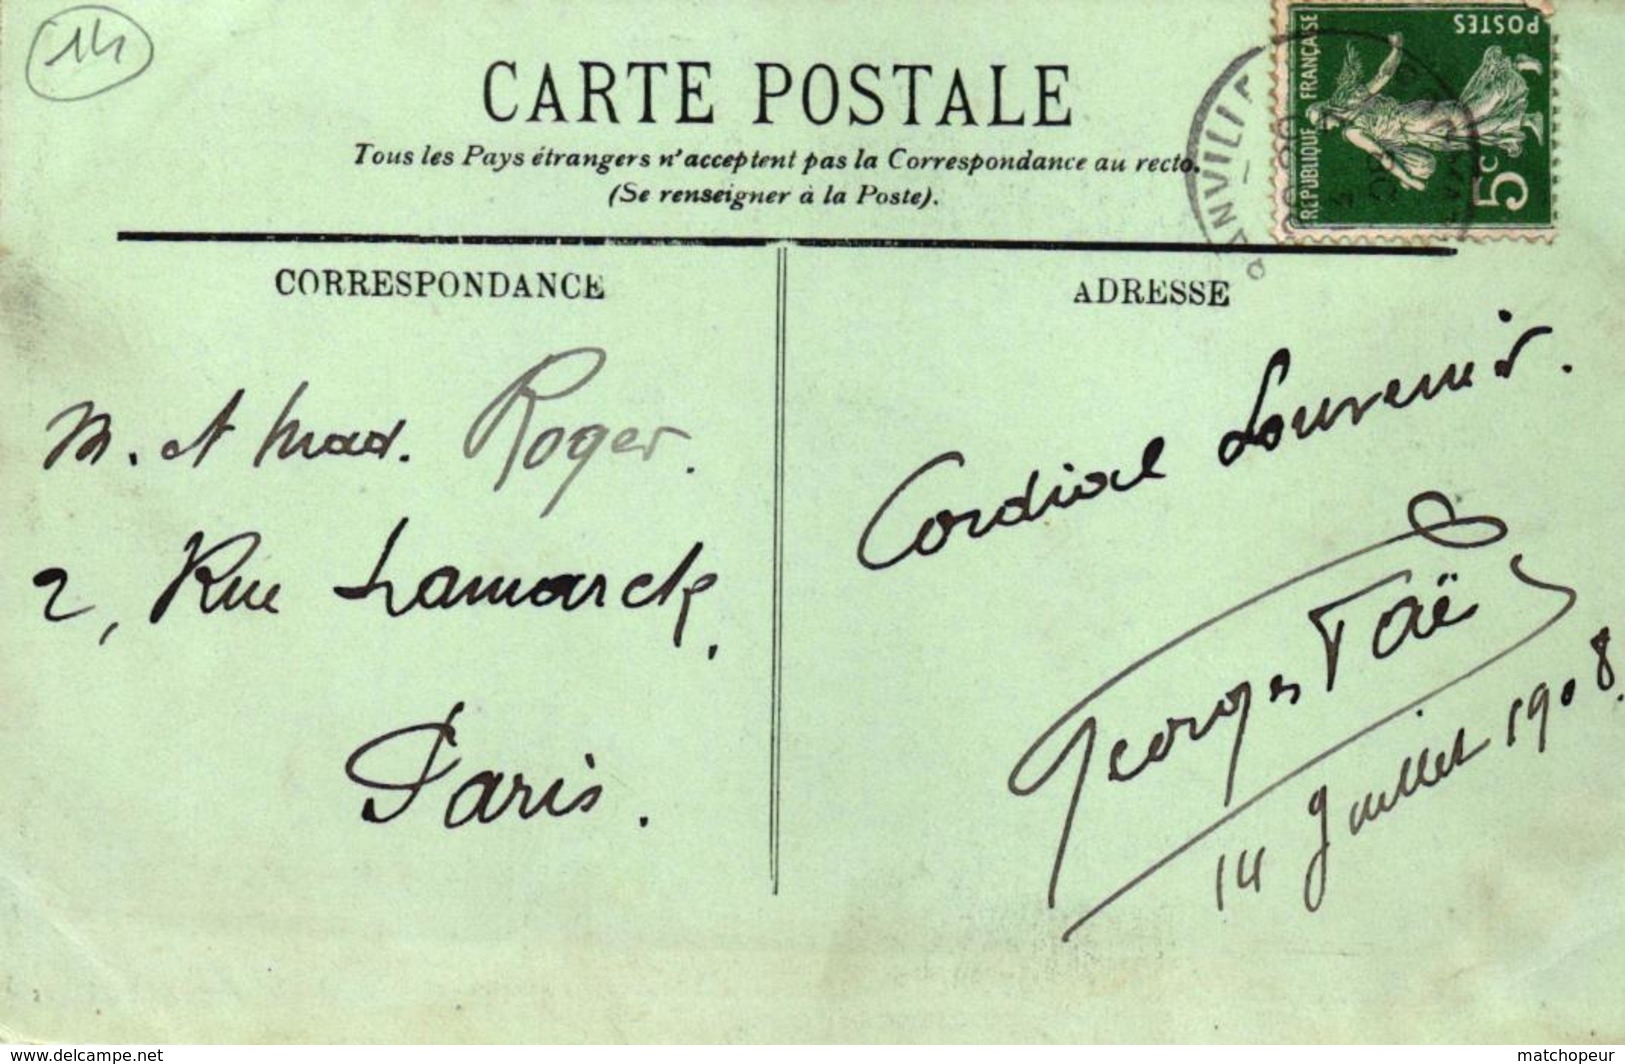 14
CARTE POSTALE
Tous les Pays étrangers n'acceptent pas la Correspondance au recto.
(Se renseigner à la Poste).
POSTES
RÉPUBLIQUE FRANÇAISE
5c
CORRESPONDANCE
M. et Mad. Roger.
2, Rue Lamarck,
Paris.
ADRESSE
Cordial Souvenir.
Georges
14 Juillet 1908.
https://www.delcampe.net
matchopeur